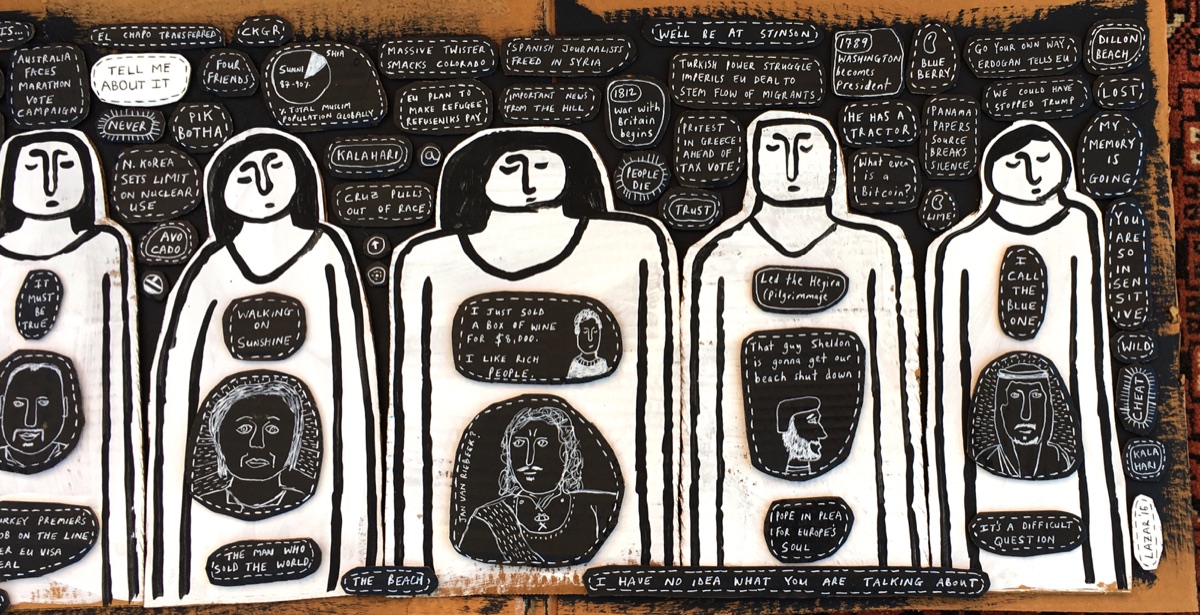 IS...
EL CHAPO TRANSFERRED
CKGR
AUSTRALIA
FACES
MARATHON
VOTE
CAMPAIGN
TELL ME
ABOUT IT
FOUR
FRIENDS
SHIA
SUNNI
87-90%
% TOTAL MUSLIM
POPULATION GLOBALLY
NEVER
PIK
BOTHA
N. KOREA
SETS LIMIT
ON NUCLEAR
USE
AVO
CADO
MASSIVE TWISTER
SMACKS COLORADO
SPANISH JOURNALISTS
FREED IN SYRIA
EU PLAN TO
MAKE REFUGEE
REFUSENIKS PAY
IMPORTANT NEWS
FROM THE HILL
KALAHARI
@
CRUZ PULLS
OUT OF RACE
WE'LL BE AT STINSON
TURKISH POWER STRUGGLE
IMPERILS EU DEAL TO
STEM FLOW OF MIGRANTS
1812
War with
Britain
begins
PEOPLE
DIE
PROTEST
IN GREECE
AHEAD OF
TAX VOTE
TRUST
1789
WASHINGTON
becomes
President
BLUE
BERRY
GO YOUR OWN WAY,
ERDOGAN TELLS EU
DILLON
BEACH
WE COULD HAVE
STOPPED TRUMP
LOST
HE HAS A
TRACTOR
PANAMA
PAPERS
SOURCE
BREAKS
SILENCE
What even
is a
Bitcoin?
LIME
MY
MEMORY
IS
GOING
YOU
ARE
SO
IN
SEN
SIT
IVE
WILD
CHEAT
KALA
HARI
LAZAR '16
IT
MUST
BE
TRUE
TURKEY PREMIER'S
JOB ON THE LINE
EU VISA
WALKING
ON
SUNSHINE
THE MAN WHO
SOLD THE WORLD
THE BEACH
I JUST SOLD
A BOX OF WINE
FOR $8,000.
I LIKE RICH
PEOPLE.
JAN VAN RIEBEECK?
Led the Hejira
(pilgrimmage
That guy Sheldon
is gonna get our
beach shut down
POPE IN PLEA
FOR EUROPE'S
SOUL
I
CALL
THE
BLUE
ONE
IT'S A DIFFICULT
QUESTION
I HAVE NO IDEA WHAT YOU ARE TALKING ABOUT